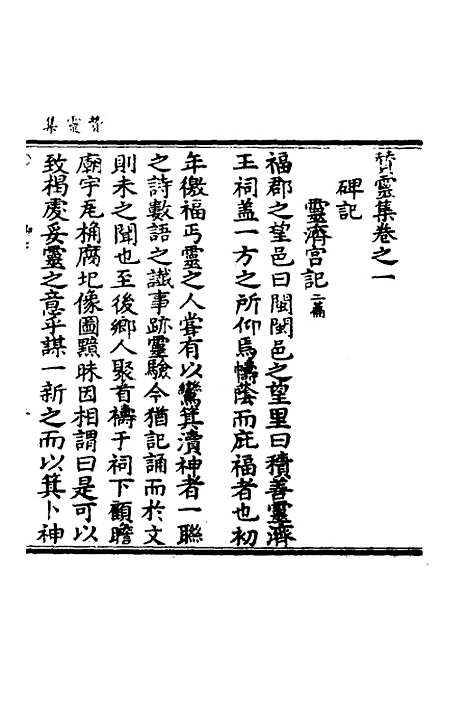 贊靈集
贊靈集卷之一
碑記
靈濟宮記二篇
福郡之望邑曰閩閩邑之望里曰積善靈濟
王祠盖一方之所仰焉幬蔭而庇福者也初
年徼福丐靈之人嘗有以鸞箕瀆神者一聯
之詩數語之讖事跡靈驗今猶記誦而於文
則未之聞也至後鄉人聚首禱于祠下顧瞻
廟宇尾桷腐圮像圖黯昧因相謂曰是可以
致揭虔妥靈之意乎謀一新之而以箕卜神